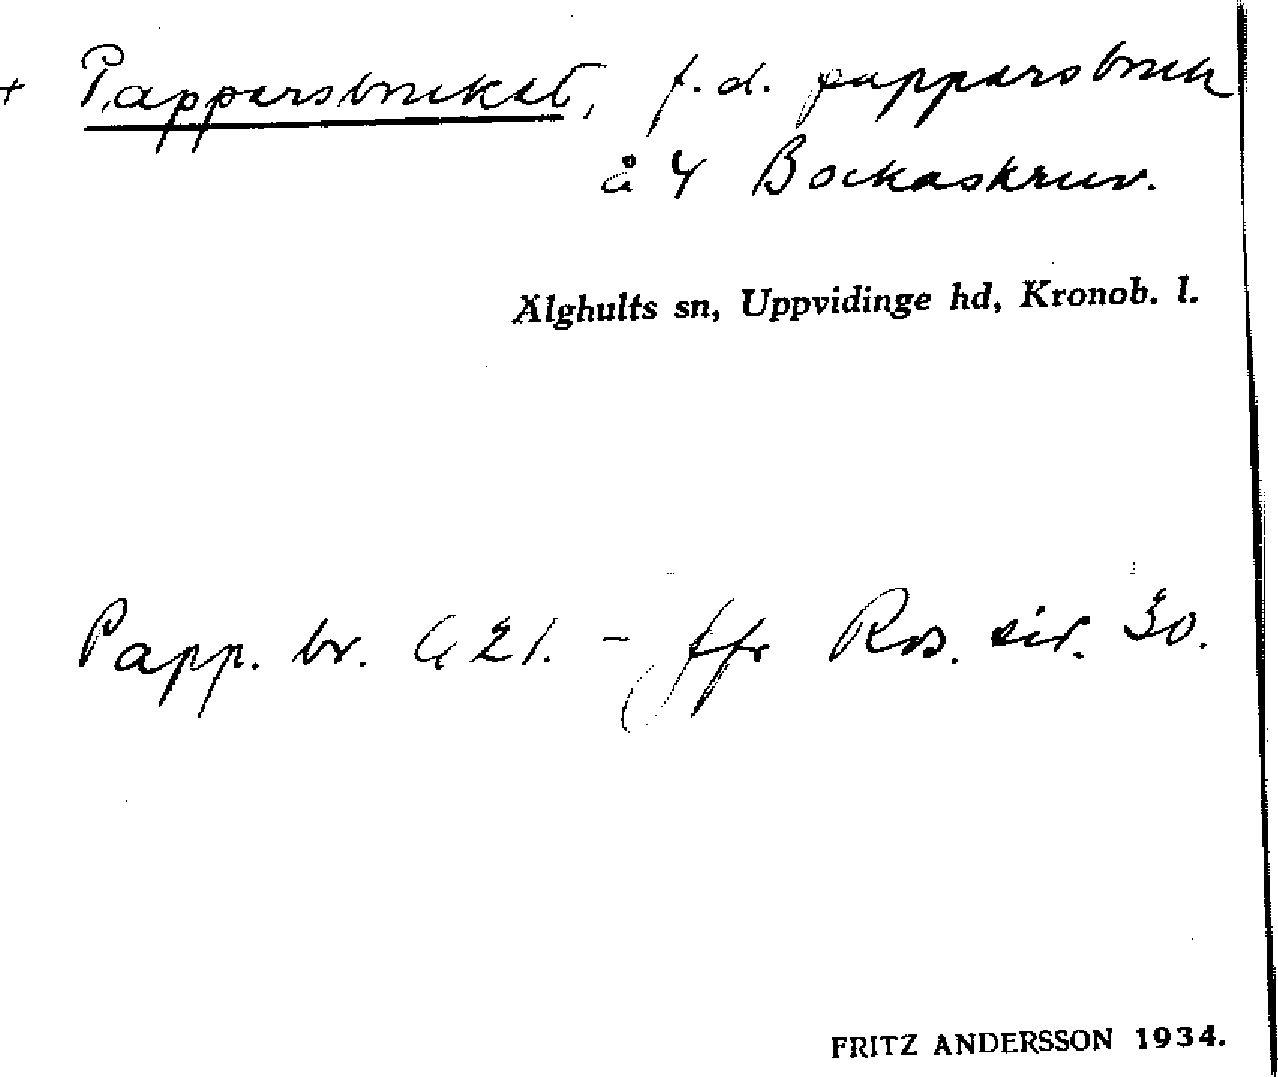 + Pappersbruket, f.d. pappersbruk
å 4 Bockaskruv.
Älghults sn, Uppvidinge hd, Kronob. l.
Papp. br. G 21. - Jfr Ros. sid. 30.
FRITZ ANDERSSON 1934.